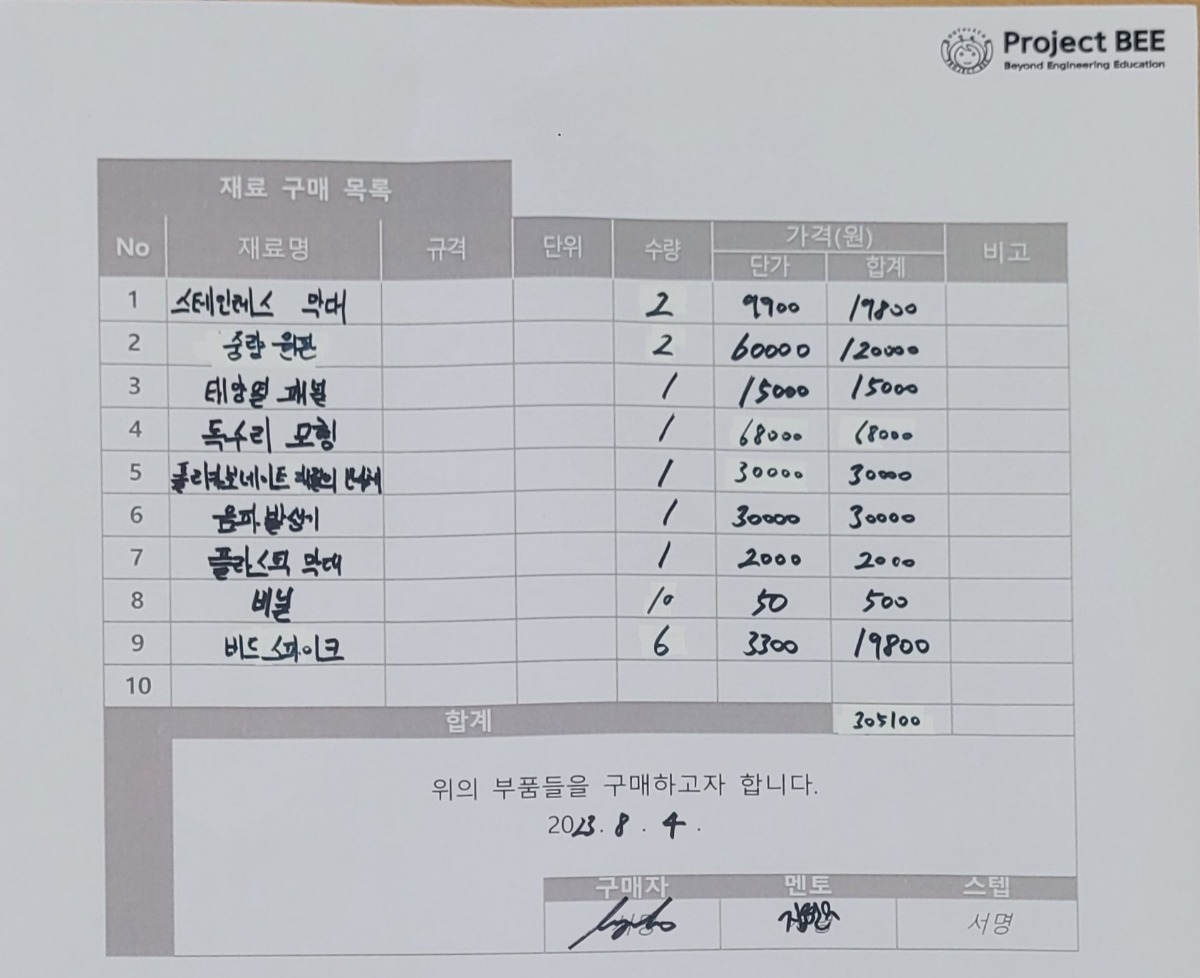 Project BEE
Beyond Engineering Education
재료 구매 목록
No 재료명 규격 단위 수량 가격(원) 비고
단가 합계
1 스테인레스 막대 2 9900 19800
2 중량 원판 2 60000 120000
3 태양열 패널 1 15000 15000
4 독수리 모형 1 68000 68000
5 폴리카보네이트 재질의 1 30000 30000
6 음파 발생기 1 30000 30000
7 플라스틱 막대 1 2000 2000
8 비닐 10 50 500
9 버드 스파이크 6 3300 19800
10
합계 305100
위의 부품들을 구매하고자 합니다.
2023. 8 . 4 .
구매자 멘토 스텝
서명